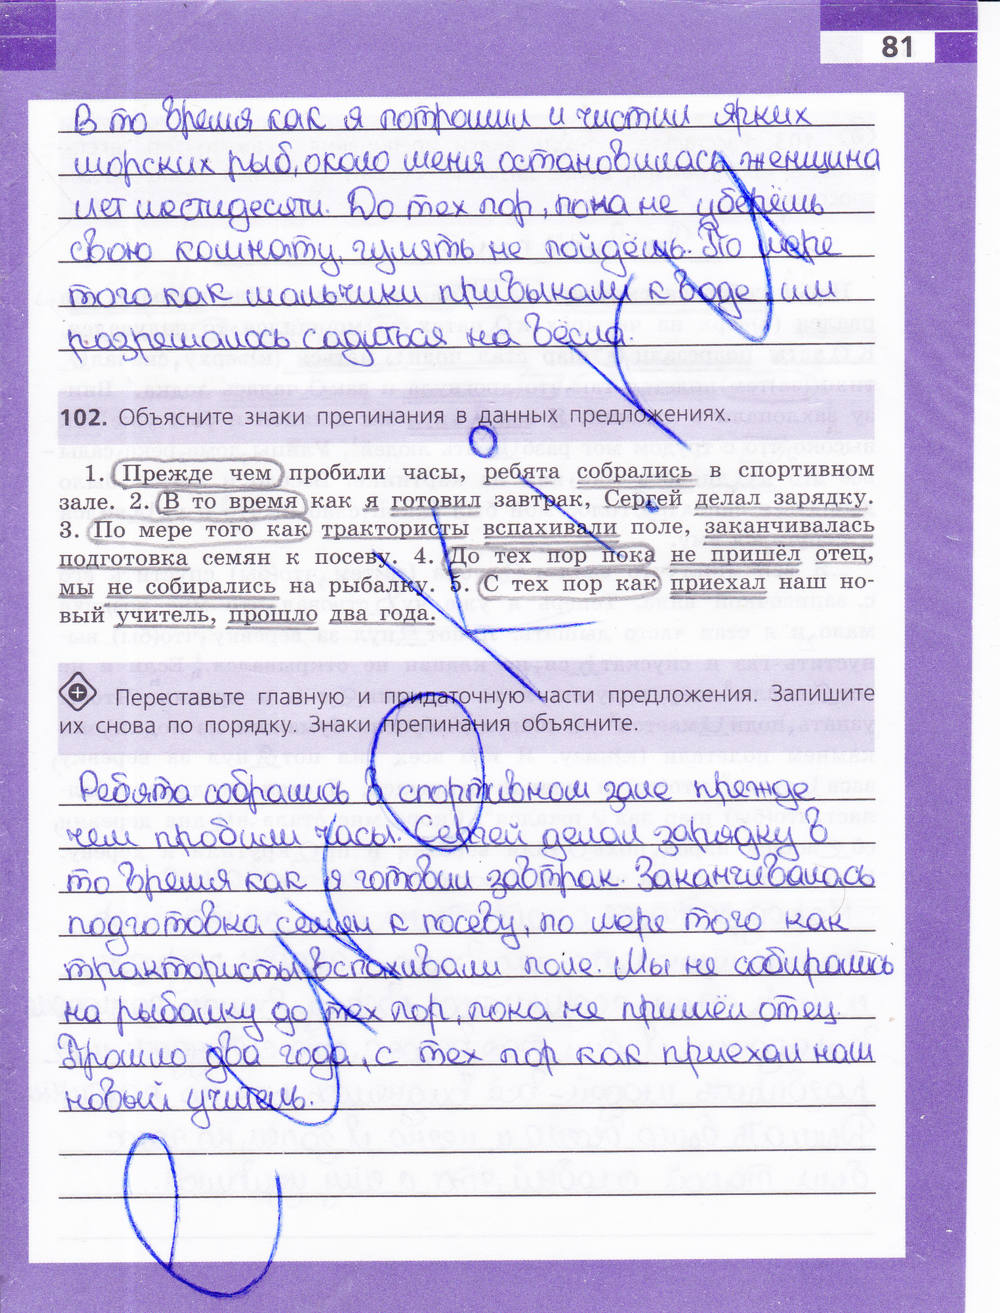 81
В то время как я потрошил и чистил ярких
морских рыб, около меня остановилась женщина
лет шестидесяти. До тех пор, пока не уберёшь
свою комнату, гулять не пойдёшь. По мере
того как мальчики привыкали к воде, им
разрешалось садиться на вёсла.
102. Объясните знаки препинания в данных предложениях.
1. Прежде чем пробили часы, ребята собрались в спортивном
зале. 2. В то время как я готовил завтрак, Сергей делал зарядку.
3. По мере того как трактористы вспахивали поле, заканчивалась
подготовка семян к посеву. 4. До тех пор пока не пришёл отец,
мы не собирались на рыбалку. 5. С тех пор как приехал наш но-
вый учитель, прошло два года.
Переставьте главную и придаточную части предложения. Запишите
их снова по порядку. Знаки препинания объясните.
Ребята собрались в спортивном зале прежде
чем пробили часы. Сергей делал зарядку в
то время как я готовил завтрак. Заканчивалась
подготовка семян к посеву, по мере того как
трактористы вспахивали поле. Мы не собирались
на рыбалку до тех пор, пока не пришёл отец.
Прошло два года, с тех пор как приехал наш
новый учитель.